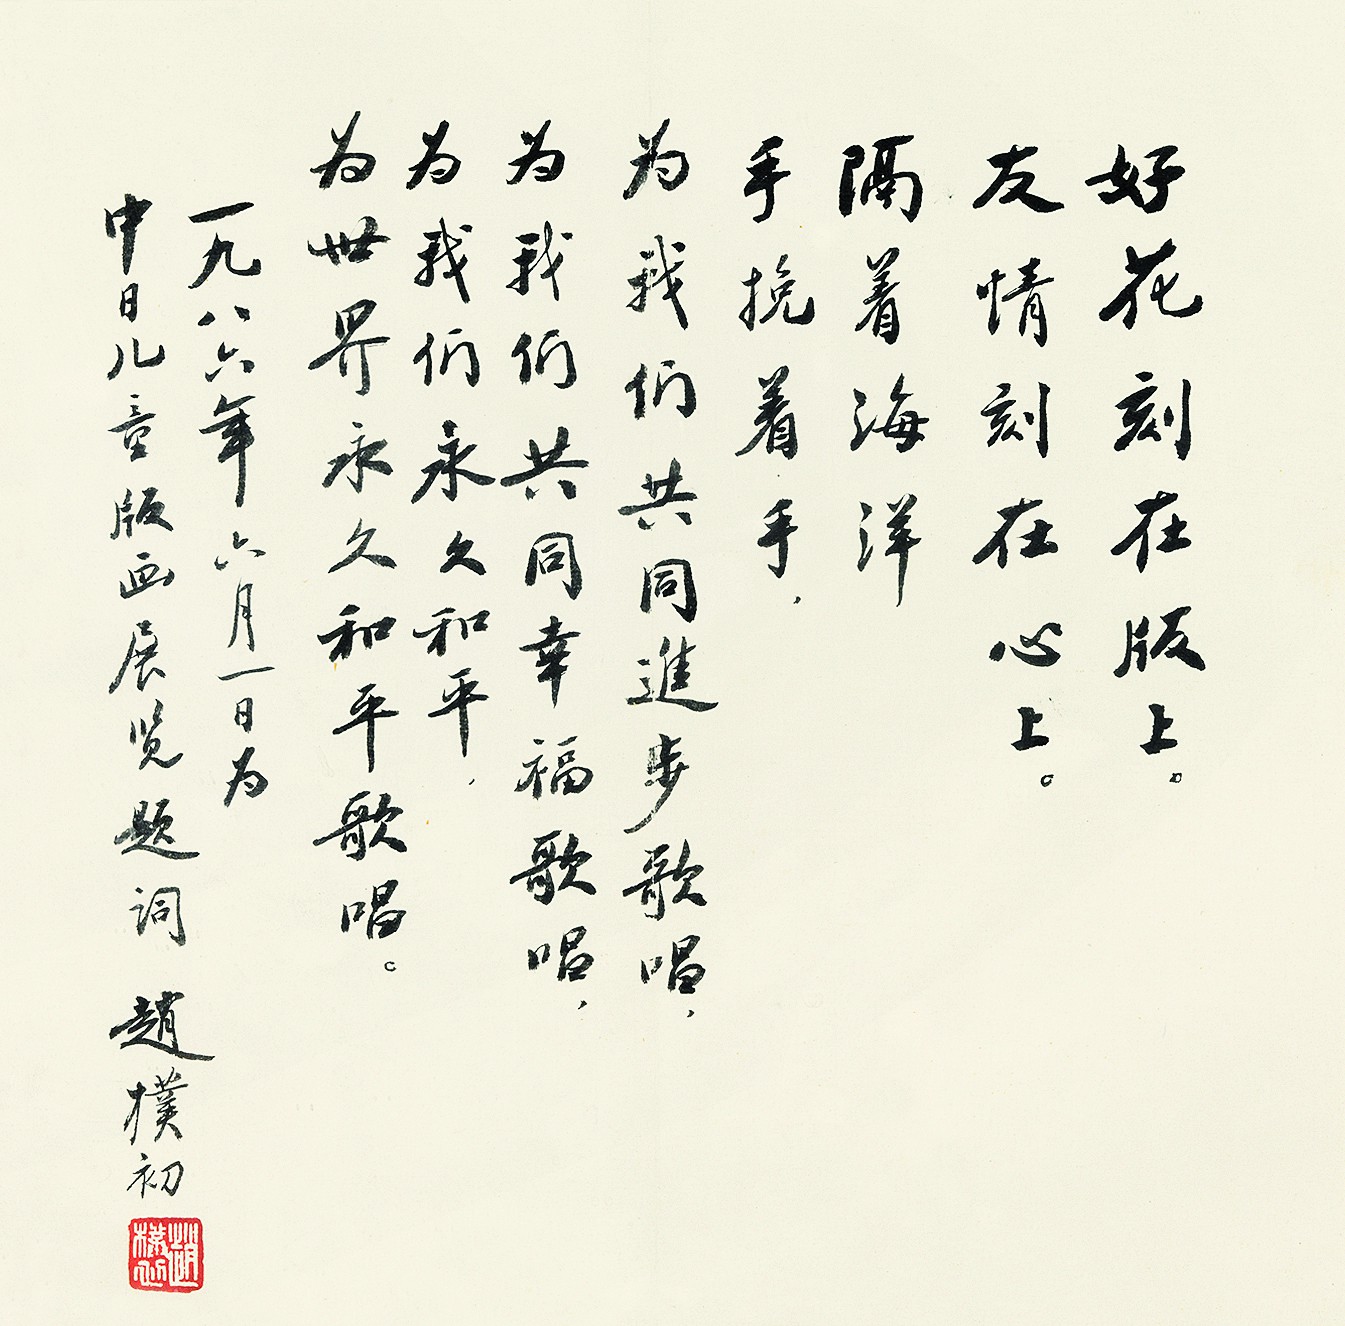 好花刻在版上。
友情刻在心上。
隔着海洋
手挽着手，
为我们共同進步歌唱，
为我们共同幸福歌唱，
为我们永久和平，
为世界永久和平歌唱。
一九八六年六月一日为
中日儿童版画展览题词 趙樸初
趙樸初